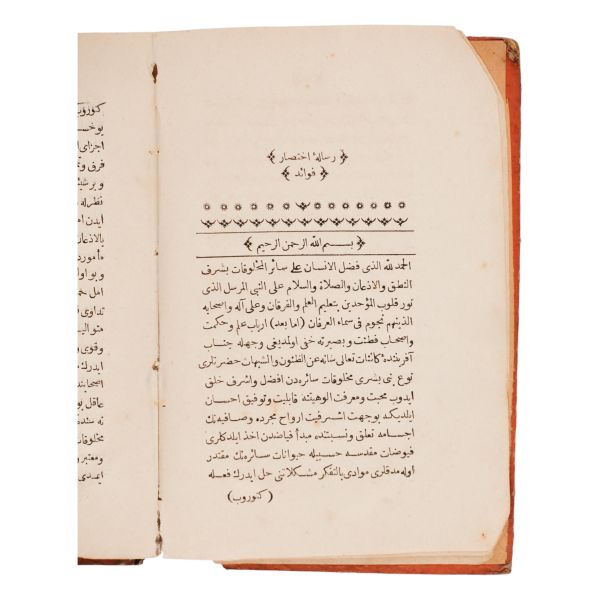 رسالۀ اختصار
فوائد
بسم الله الرحمن الرحيم
الحمد لله الذى فضل الانسان على سائر المخلوقات بشرف
النطق والاذعان والصلاة والسلام على النبى المرسل الذى
نور قلوب المؤحدين بتعليم العلم والفرقان وعلى آله واصحابه
الذينهم نجوم فى سماء العرفان (اما بعد) ارباب علم وحكمت
واصحاب فطنت وبصيرته خفى اولمديغى وجهله جناب
آفرينندۀ كائنات تعالى شانه عن الظنون والشبهان حضرتلرى
نوع بنى بشرى مخلوقات سائره دن افضل واشرف خلق
ايدوب محبت ومعرفت الوهيتنه قابليت وتوفيق احسان
ايلديكنه بوجهت اشرفيت ارواح مجرده وصافيه نك
اجسامه تعلق ونسبتنده مبدأ فياضدن اخذ ايلدكلرى
فيوضات مقدسه حسبيله حيوانات سائره نك مقتدر
اوله مدقلرى موادى بالتفكر مشكلاتنى حل ايدرك فعله
(كتوروب)
كتوروب
يوخسه
اجزاى
فرق و
و بر شيئ
نظرله
ايدن ام
بالاذعان
مأمورد
و بو اول
امل خ
تداوى
وقوى و
ايدرك
اصحابند
عاقل بو
مخلوقات
ومعتبر و